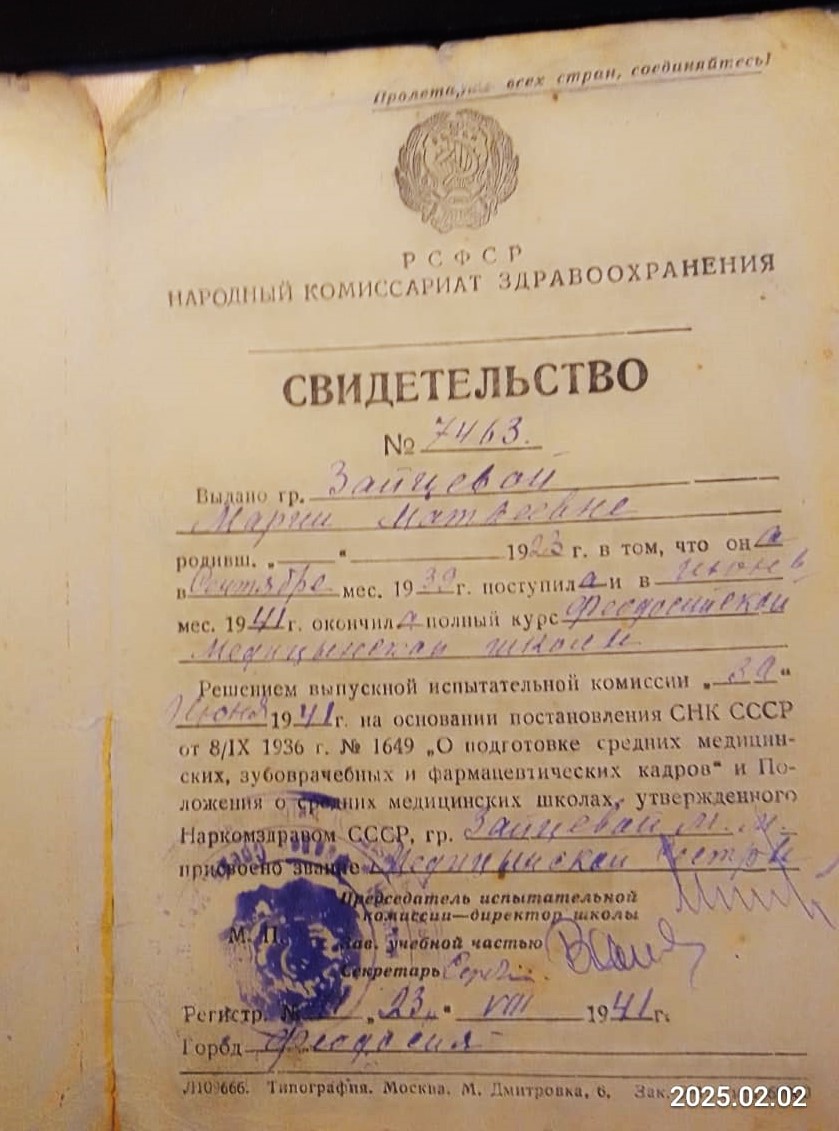 Пролетарии всех стран, соединяйтесь!
РСФСР
НАРОДНЫЙ КОМИССАРИАТ ЗДРАВООХРАНЕНИЯ
СВИДЕТЕЛЬСТВО
№ 7463.
Выдано гр. Зайцевой
Марии Матвеевне
родивш. „ “ 1923 г. в том, что она
в Сентябре мес. 1939 г. поступила и в июне
мес. 1941 г. окончила полный курс Феодосийской
Медицынской школы
Решением выпускной испытательной комиссии „30“
Июня 1941 г. на основании постановления СНК СССР
от 8/IX 1936 г. № 1649 „О подготовке средних медицин-
ских, зубоврачебных и фармацевтических кадров“ и По-
ложения о средних медицинских школах, утвержденного
Наркомздравом СССР, гр. Зайцевой М. М.
присвоено звание Медицынской Сестры
Председатель испытательной
комиссии—директор школы
М. П.
Зав. учебной частью
Секретарь
Регистр. № „23“ VIII 1941 г.
Город Феодосия
Л109666. Типография. Москва. М. Дмитровка, 6. Зак.
2025.02.02